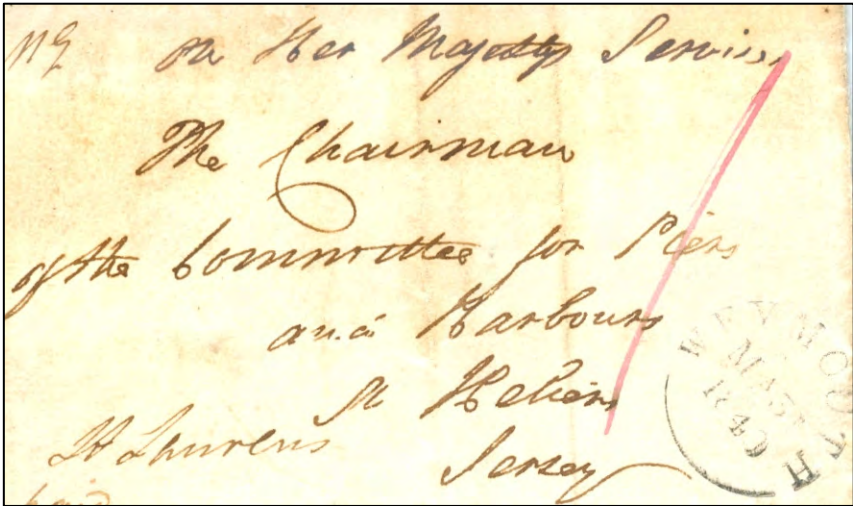 On Her Majestys Service
The Chairman
of the Committee for Piers
and Harbours
St Heliers
Jersey
H Laurens
paid
WEYMOUTH
MA 31
1840